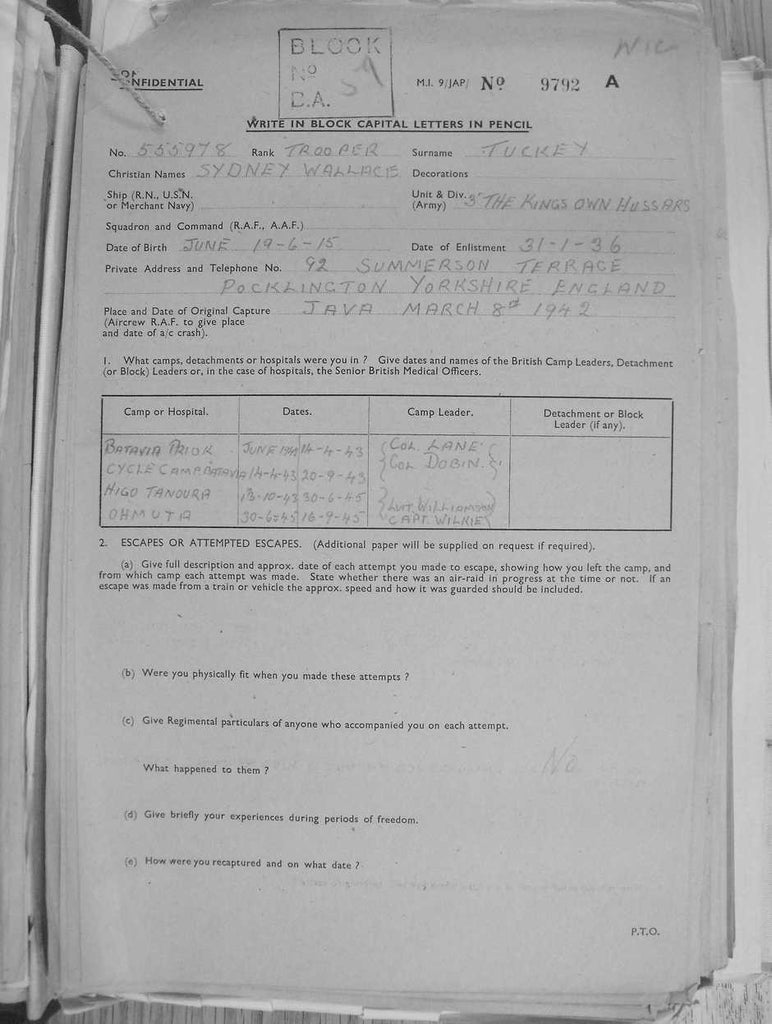 BLOCK
No 59
C.A.
CONFIDENTIAL
M.I. 9/JAP/ No 9792 A
WRITE IN BLOCK CAPITAL LETTERS IN PENCIL
No. 555978 Rank TROOPER Surname TUCKEY
Christian Names SYDNEY WALLACE Decorations
Ship (R.N., U.S.N. or Merchant Navy) Unit & Div. (Army) 3rd THE KINGS OWN HUSSARS
Squadron and Command (R.A.F., A.A.F.)
Date of Birth JUNE 19-6-15 Date of Enlistment 31-1-36
Private Address and Telephone No. 92 SUMMERSON TERRACE
POCKLINGTON YORKSHIRE ENGLAND
Place and Date of Original Capture JAVA MARCH 8th 1942
(Aircrew R.A.F. to give place
and date of a/c crash).
1. What camps, detachments or hospitals were you in ? Give dates and names of the British Camp Leaders, Detachment
(or Block) Leaders or, in the case of hospitals, the Senior British Medical Officers.
Camp or Hospital. Dates. Camp Leader. Detachment or Block Leader (if any).
BATAVIA PRIOK JUNE 1942 14-4-43 COL. LANE
CYCLE CAMP BATAVIA 14-4-43 20-9-43 COL DOBIN.
HIGO TANOURA 13-10-43 30-6-45 LUIT WILLIAMSON
OHMUTA 30-6-45 16-9-45 CAPT. WILKIE
2. ESCAPES OR ATTEMPTED ESCAPES. (Additional paper will be supplied on request if required).
(a) Give full description and approx. date of each attempt you made to escape, showing how you left the camp, and
from which camp each attempt was made. State whether there was an air-raid in progress at the time or not. If an
escape was made from a train or vehicle the approx. speed and how it was guarded should be included.
(b) Were you physically fit when you made these attempts ?
(c) Give Regimental particulars of anyone who accompanied you on each attempt.
No
What happened to them ?
(d) Give briefly your experiences during periods of freedom.
(e) How were you recaptured and on what date ?
P.T.O.